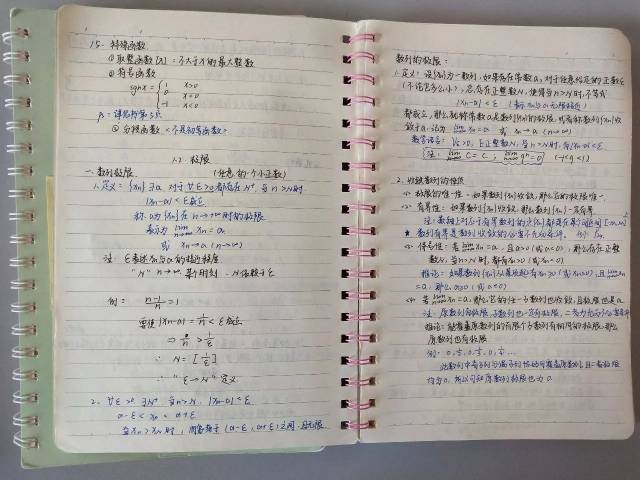 15. 特殊函数
① 取整函数 [x] : 不大于x的最大整数
② 符号函数
sgnx = { 1 x>0
0 x=0
-1 x<0
③ 分段函数 <不是初等函数>
1.2. 极限
一. 数列极限 (任意的一个小正数)
1. 定义: {xn} ∃a 对 ∀ε>0 都存在N⁺, 当 n>N时
|xn-a|<ε 成立
称 a为{xn}在 n→∞时的极限
表示为 lim n→∞ xn=a
或 xn→a (n→∞)
注 ε表述xn与a的接近程度
"N" n→∞ 某个时刻. N依赖于ε
例: n-1/n =1
要使 |xn-a| = 1/n < ε 成立
⇒ n > 1/ε
∴ N = [1/ε]
∴ "ε→N" 定义
2. ∀ε>0 ∃N⁺ 当n>N. |xn-a|<ε
a-ε < xn < a+ε
数列的极限:
1. 定义: 设{xn}为一数列, 如果存在常数a, 对于任意给定的正数ε
(不论它多么小), 总存在正整数N, 使得当n>N时, 不等式
|xn-a|<ε (表示xn与a无限接近)
都成立, 那么就称常数a是数列{xn}的极限, 或者称数列{xn}收
敛于a, 记为 lim n→∞ xn=a 或 xn→a (n→∞)
数学语言: ∀ε>0, ∃正整数N, 当n>N时, 有|xn-a|<ε
注: lim n→∞ C = C; lim n→∞ qⁿ=0 (-1<q<1)
2. 收敛数列的性质
(1) 极限的唯一性 - 如果数列{xn}收敛, 那么它的极限唯一
(2) 有界性: 如果数列{xn}收敛, 那么数列{xn}一定有界
注: 数轴上对应于有界数列的点{xn}都落在某个闭区间 [-M,M]
* 数列有界是数列收敛的必要不充分条件.
(3) 保号性: 若 lim n→∞ xn=a, 且a>0 (或a<0), 那么存在正整
数N, 当n>N时, 都有xn>0 (或xn<0)
推论: 如果数列{xn}从某项起有xn≥0 (或xn≤0), 且 lim n→∞ xn
=a, 那么a≥0 (或a≤0)
(4) 若 lim n→∞ xn=a, 那么它的任一子数列也收敛, 且极限也是a
注: 原数列有极限, 子数列也一定有极限,
推论: 能覆盖原数列的有限个子数列有相同的极限, 那么
原数列也有极限
均为0, 所以可知原数列极限也为0